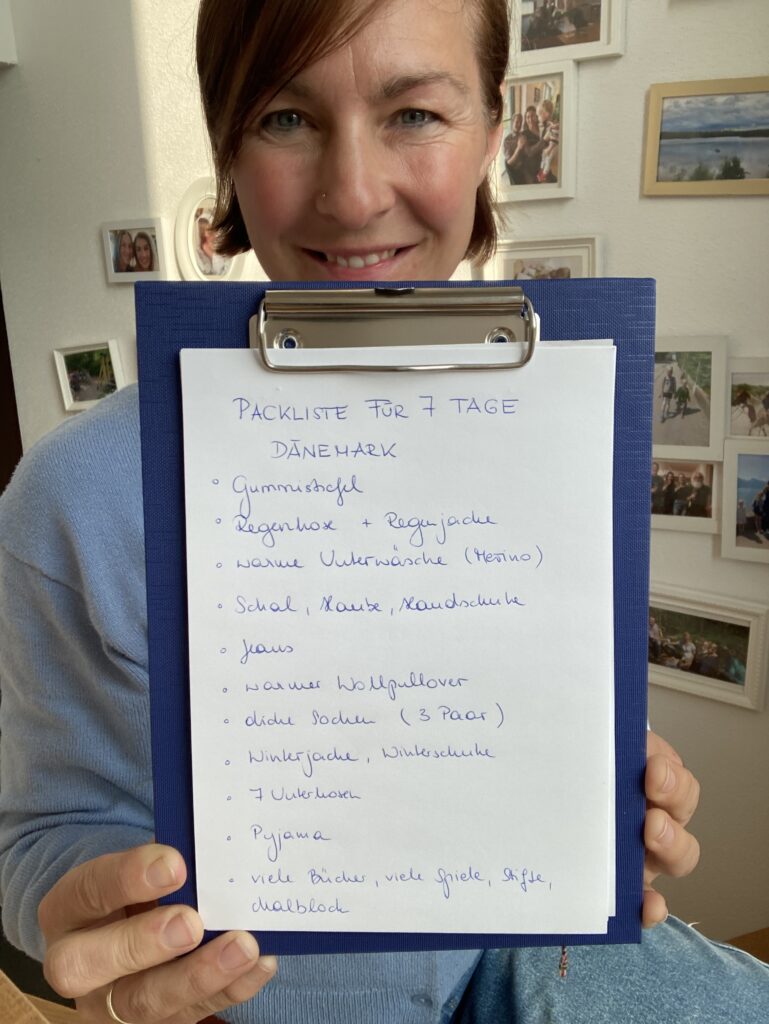 PACKLISTE FÜR 7 TAGE
DÄNEMARK
° Gummistiefel
° Regenhose + Regenjacke
° warme Unterwäsche (Merino)
° Schal, Haube, Handschuhe
° Jeans
° warmer Wollpullover
° dicke Socken (3 Paar)
° Winterjacke, Winterschuhe
° 7 Unterhosen
° Pyjama
° viele Bücher, viele Spiele, Stifte,
Malblock